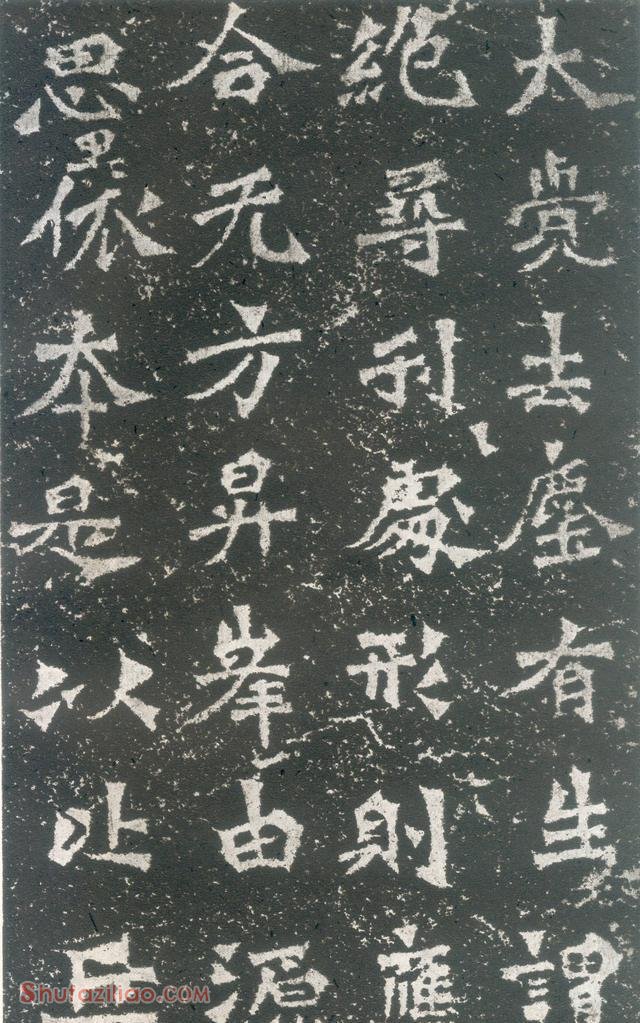 大覺去塵有生謂
絕尋刊處形則應
合无方昇峯由源
思依本是以比丘
Shufaziliao.com